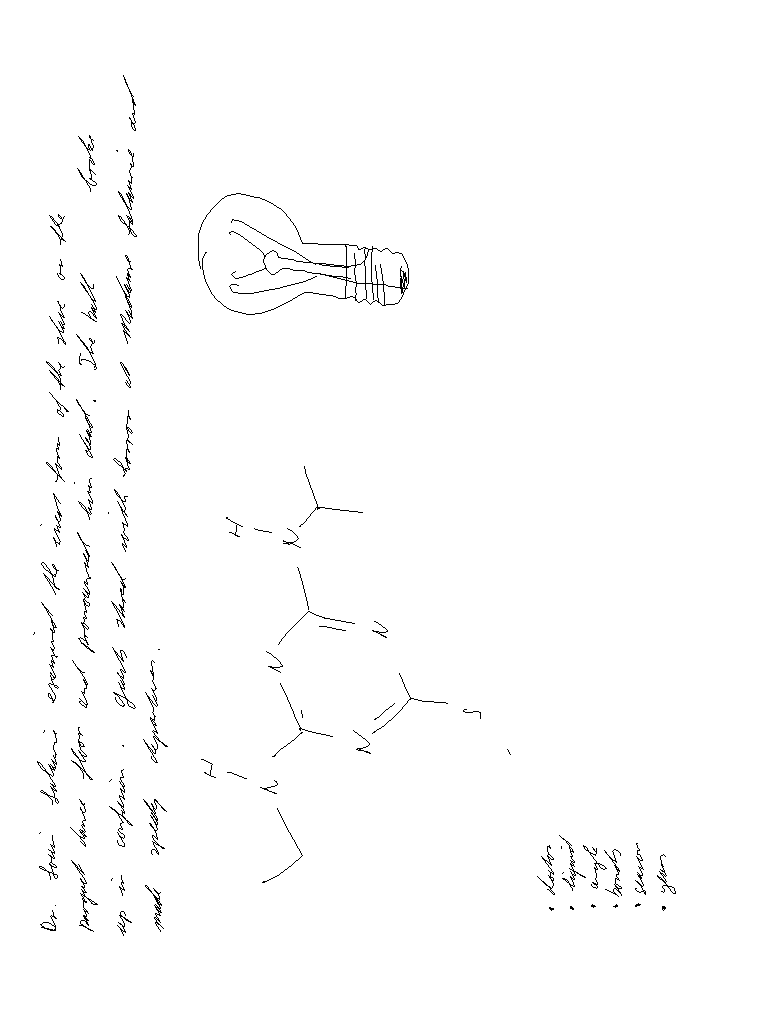 Dr. Louis Lalaurie examined the inert form of the slave on the
parquet dance floor and pronounced him dead. The ball broke
up in confusion. Guests stared with horror at Madame Lalaurie and
made speedy departures.
H
N
H
N
N
N
N
S
• doctor
• liquid
• angle
• bonds
• season
• glass